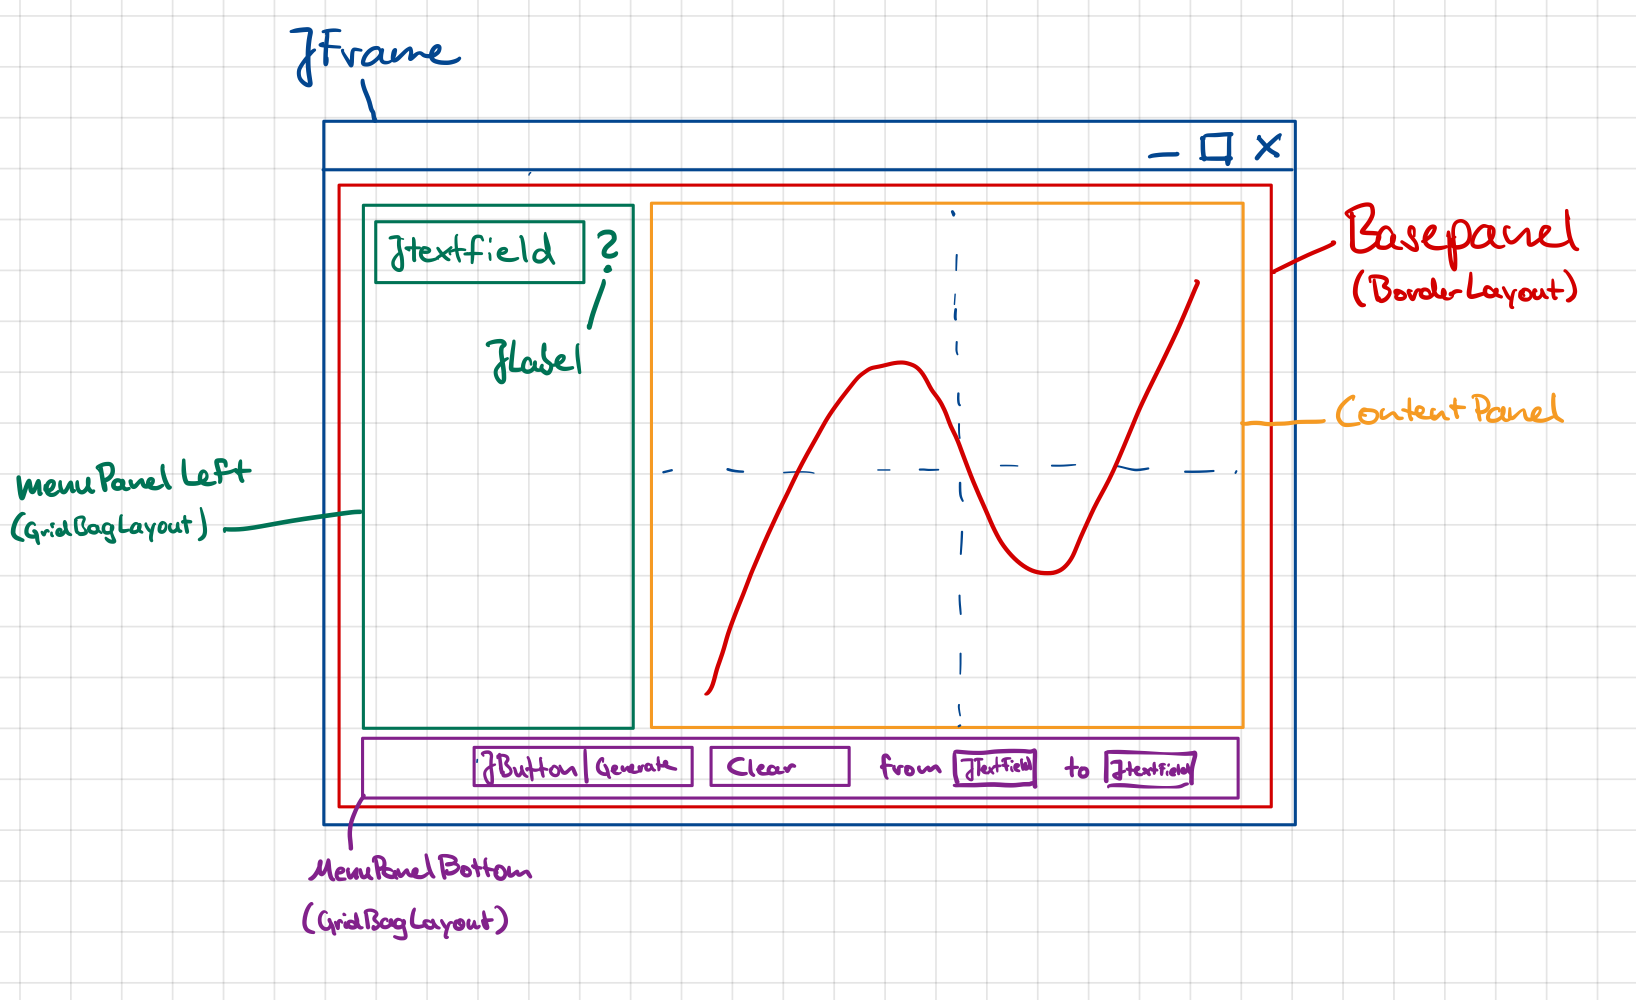 JFrame
Basepanel
(BorderLayout)
Jtextfield ?
JLabel
ContentPanel
menuPanelLeft
(GridBagLayout)
JButton | Generate Clear from JTextField to JtextField
MenuPanelBottom
(GridBagLayout)